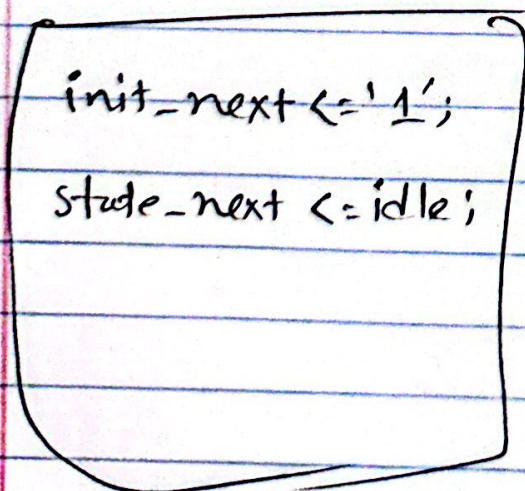 init_next <= '1';
state_next <= idle;